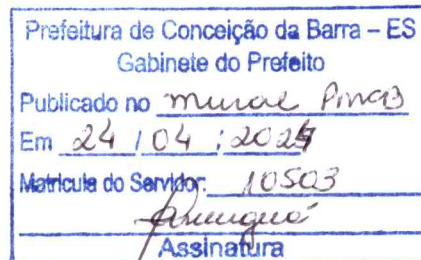 Prefeitura de Conceição da Barra – ES
Gabinete do Prefeito
Publicado no mural PMCB
Em 24 / 04 / 2024
Matricula do Servidor: 10503
Assinatura